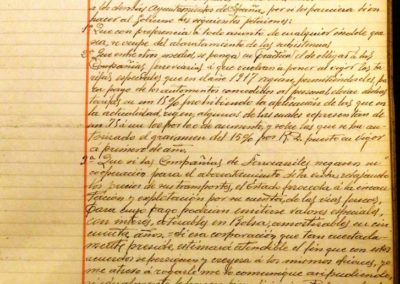 a los demás Ayuntamientos de España, por si les pareciera bien
hacer al Gobierno las siguientes peticiones:
1ª Que con preferencia a todo asunto de cualquier índole que
sea, se ocupe del abaratamiento de las subsistencias
2ª Que entre otras medidas, se ponga en práctica el obligar a las
Compañías ferroviarias a que vuelvan a poner en vigor las ta-
rifas especiales que en el año 1917 regían permitiéndoles, pa-
ra pago de los aumentos concedidos al personal elevar dichas
tarifas en un 15% prohibiendo la aplicación de las que en
la actualidad rigen, algunas de las cuales representan de
un 75 a un 100 por 100 de aumento, y sobre las que se han au-
torizado el gravamen del 15% por R.D. puesto en vigor
a primero de año.
3ª Que si las Compañías de Ferrocarriles negaren su
cooperación para el abaratamiento de la vida, rebajando
los precios de sus transportes, el Estado proceda a la incau-
tación y explotación por su cuenta, de las vías férreas,
para cuyo pago podrían emitirse valores especiales,
sin interés, cotizables en Bolsa, amortizables en cin-
cuenta años. = Si esa corporación que tan acertada-
mente preside estimara atendible el fin que con estos
acuerdos se persiguen y creyese a los mismos, ya
me atrevo a rogarle me lo comunique así pudiendo